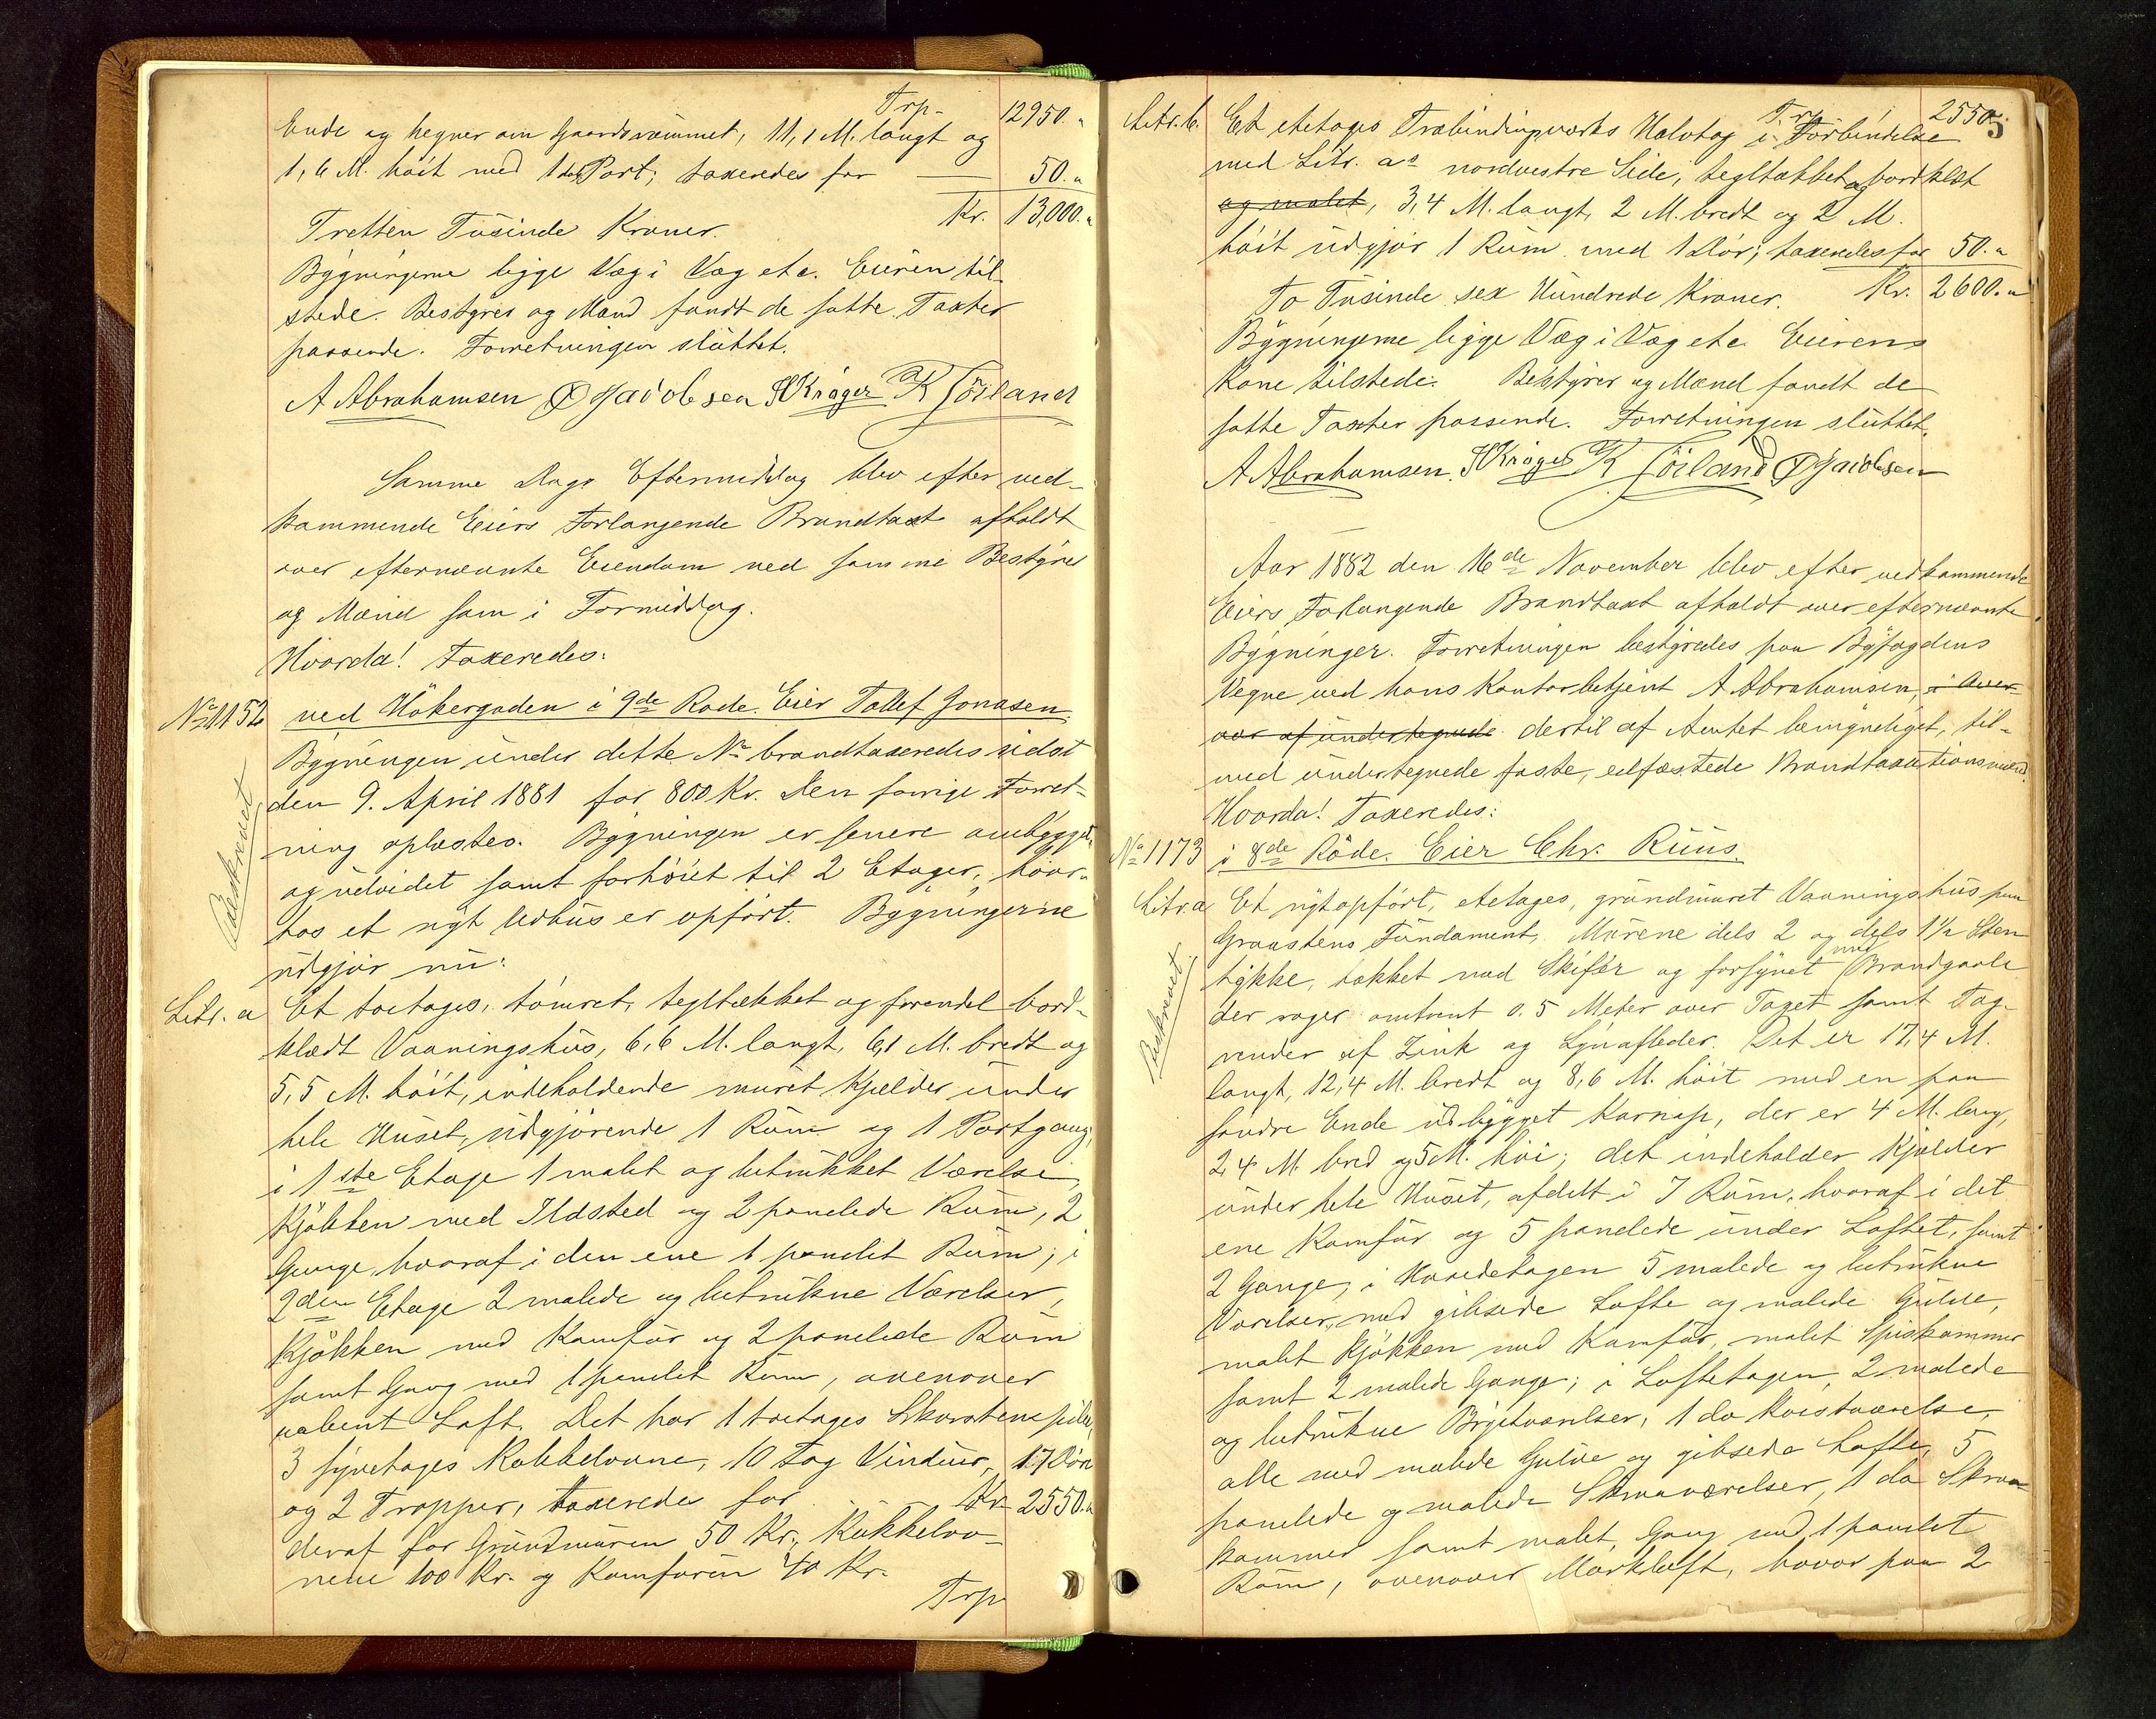 Trp. 12950."
Ende og hegner om Gaardsrommet, 11,1 M. langt og
1,6 M. höit med 1 do Port; taxeredes for 50."
Tretten Tusinde Kroner. Kr. 13,000."
Bygningerne ligge Væg i Væg etc. Eieren til-
stede. Bestyrer og Mænd fandt de satte Taxter
passende. Forretningen sluttet.
A Abrahamsen O Jacobsen Kröger K Göiland
Samme Dags Eftermiddag blev efter ved-
kommende Eiers Forlangende Brandtaxt afholdt
over efternævnte Eiendom ved samme Bestyrer
og Mænd som i Formiddag.
Hvorda! taxeredes:
No 1152 ved Hökergaden i 9de Rode. Eier Tollef Jonasen.
Bygningen under dette No brandtaxeredes sidst
den 9. April 1881 for 800 Kr. Den forrige Forret-
ning oplæstes. Bygningen er senere ombygget
Beskrevet
og udvidet samt forhöiet til 2 Etager, hvor-
hos et nyt Udhus er opfört. Bygningerne
udgjör nu:
Litr. a Et toetages, tömret, tegltækket og forendel bord-
klædt Vaaningshus, 6,6 M. langt, 6,1 M. bredt og
5,5 M. höit, indeholdende muret Kjelder under
hele Huset, udgjörende 1 Rum og 1 Portgang,
i 1ste Etage 1 malet og betrukket Værelse,
Kjökken med Ildsted og 2 panelede Rum, 2
Gange, hvoraf i den ene 1 panelet Rum; i
2den Etage 2 malede og betrukne Værelser,
Kjökken med Komfur og 2 panelede Rum
samt Gang med 1 panelet Rum, ovenover
uabent Loft. Det har 1 toetages Skorstenspibe,
3 fyretages Kakkelovne, 10 Fag Vinduer, 17 Döre
og 2 Trapper, taxeredes for Kr. 2550."
deraf for Grundmuren 50 Kr., Kakkelov-
nene 100 Kr. og Komfuren 40 Kr.
Trp
Trp. 2550."
5
Litr. b. Et etetages Træbindingsværks Halvtag i Forbindelse
med Litr. as nordvestre Side, tegltækket og bordklædt
og malet, 3,4 M. langt, 2 M. bredt og 2 M.
höit udgjör 1 Rum med 1 Dör; taxeredes for 50."
To Tusinde sex Hundrede Kroner. Kr. 2600."
Bygningerne ligge Væg i Væg etc. Eierens
Kone tilstede. Bestyrer og Mænd fandt de
satte Taxter passende. Forretningen sluttet.
A Abrahamsen. Kröger K Göiland O Jacobsen
Aar 1882 den 16de November blev efter vedkommende
Eiers Forlangende Brandtaxt afholdt over efternævnte
Bygninger. Forretningen bestyredes paa Byfogdens
Vegne ved hans Kontorbetjent A Abrahamsen, i Over-
vær af undertegnede dertil af Amtet bemyndiget, til-
med undertegnede faste, edfæstede Brandtaxationsmænd.
Hvorda! Taxeredes:
No 1173 i 8de Rode. Eier Chr. Ruus.
Litr. a Et nytopfört, etetages, grundmuret Vaaningshus paa
Graastens Fundament, Murene dels 2 og dels 1 1/2 Sten
tykke, tækket med Skifer og forsynet med Brandgavle
Beskrevet
der rager omtrent 0.5 Meter over Taget samt Tag-
render af Zink og Lynafleder. Det er 17,4 M.
langt, 12,4 M. bredt og 8,6 M. höit med en paa
söndre Ende udbygget Karnap, der er 4 M. lang,
2,4 M. bred og 5 M. höi; det indeholder Kjelder
under hele Huset, afdelt i 7 Rum, hvoraf i det
ene Komfur og 5 panelede under Loftet, samt
2 Gange, i Hovedetagen 5 malede og betrukne
Værelser, med gibsede Lofte og malede Gulve,
malet Kjökken med Komfur, malet Spiskammer
samt 2 malede Gange; i Loftetagen, 2 malede
og betrukne værelser, 1 do Kvistværelse,
alle med malede Gulve og gibsede Lofte, 5
panelede og malede Skraaværelser, 1 do Skraa-
kammer samt malet Gang med 1 panelet
Rum, ovenover Mörkloft, hvor paa 2